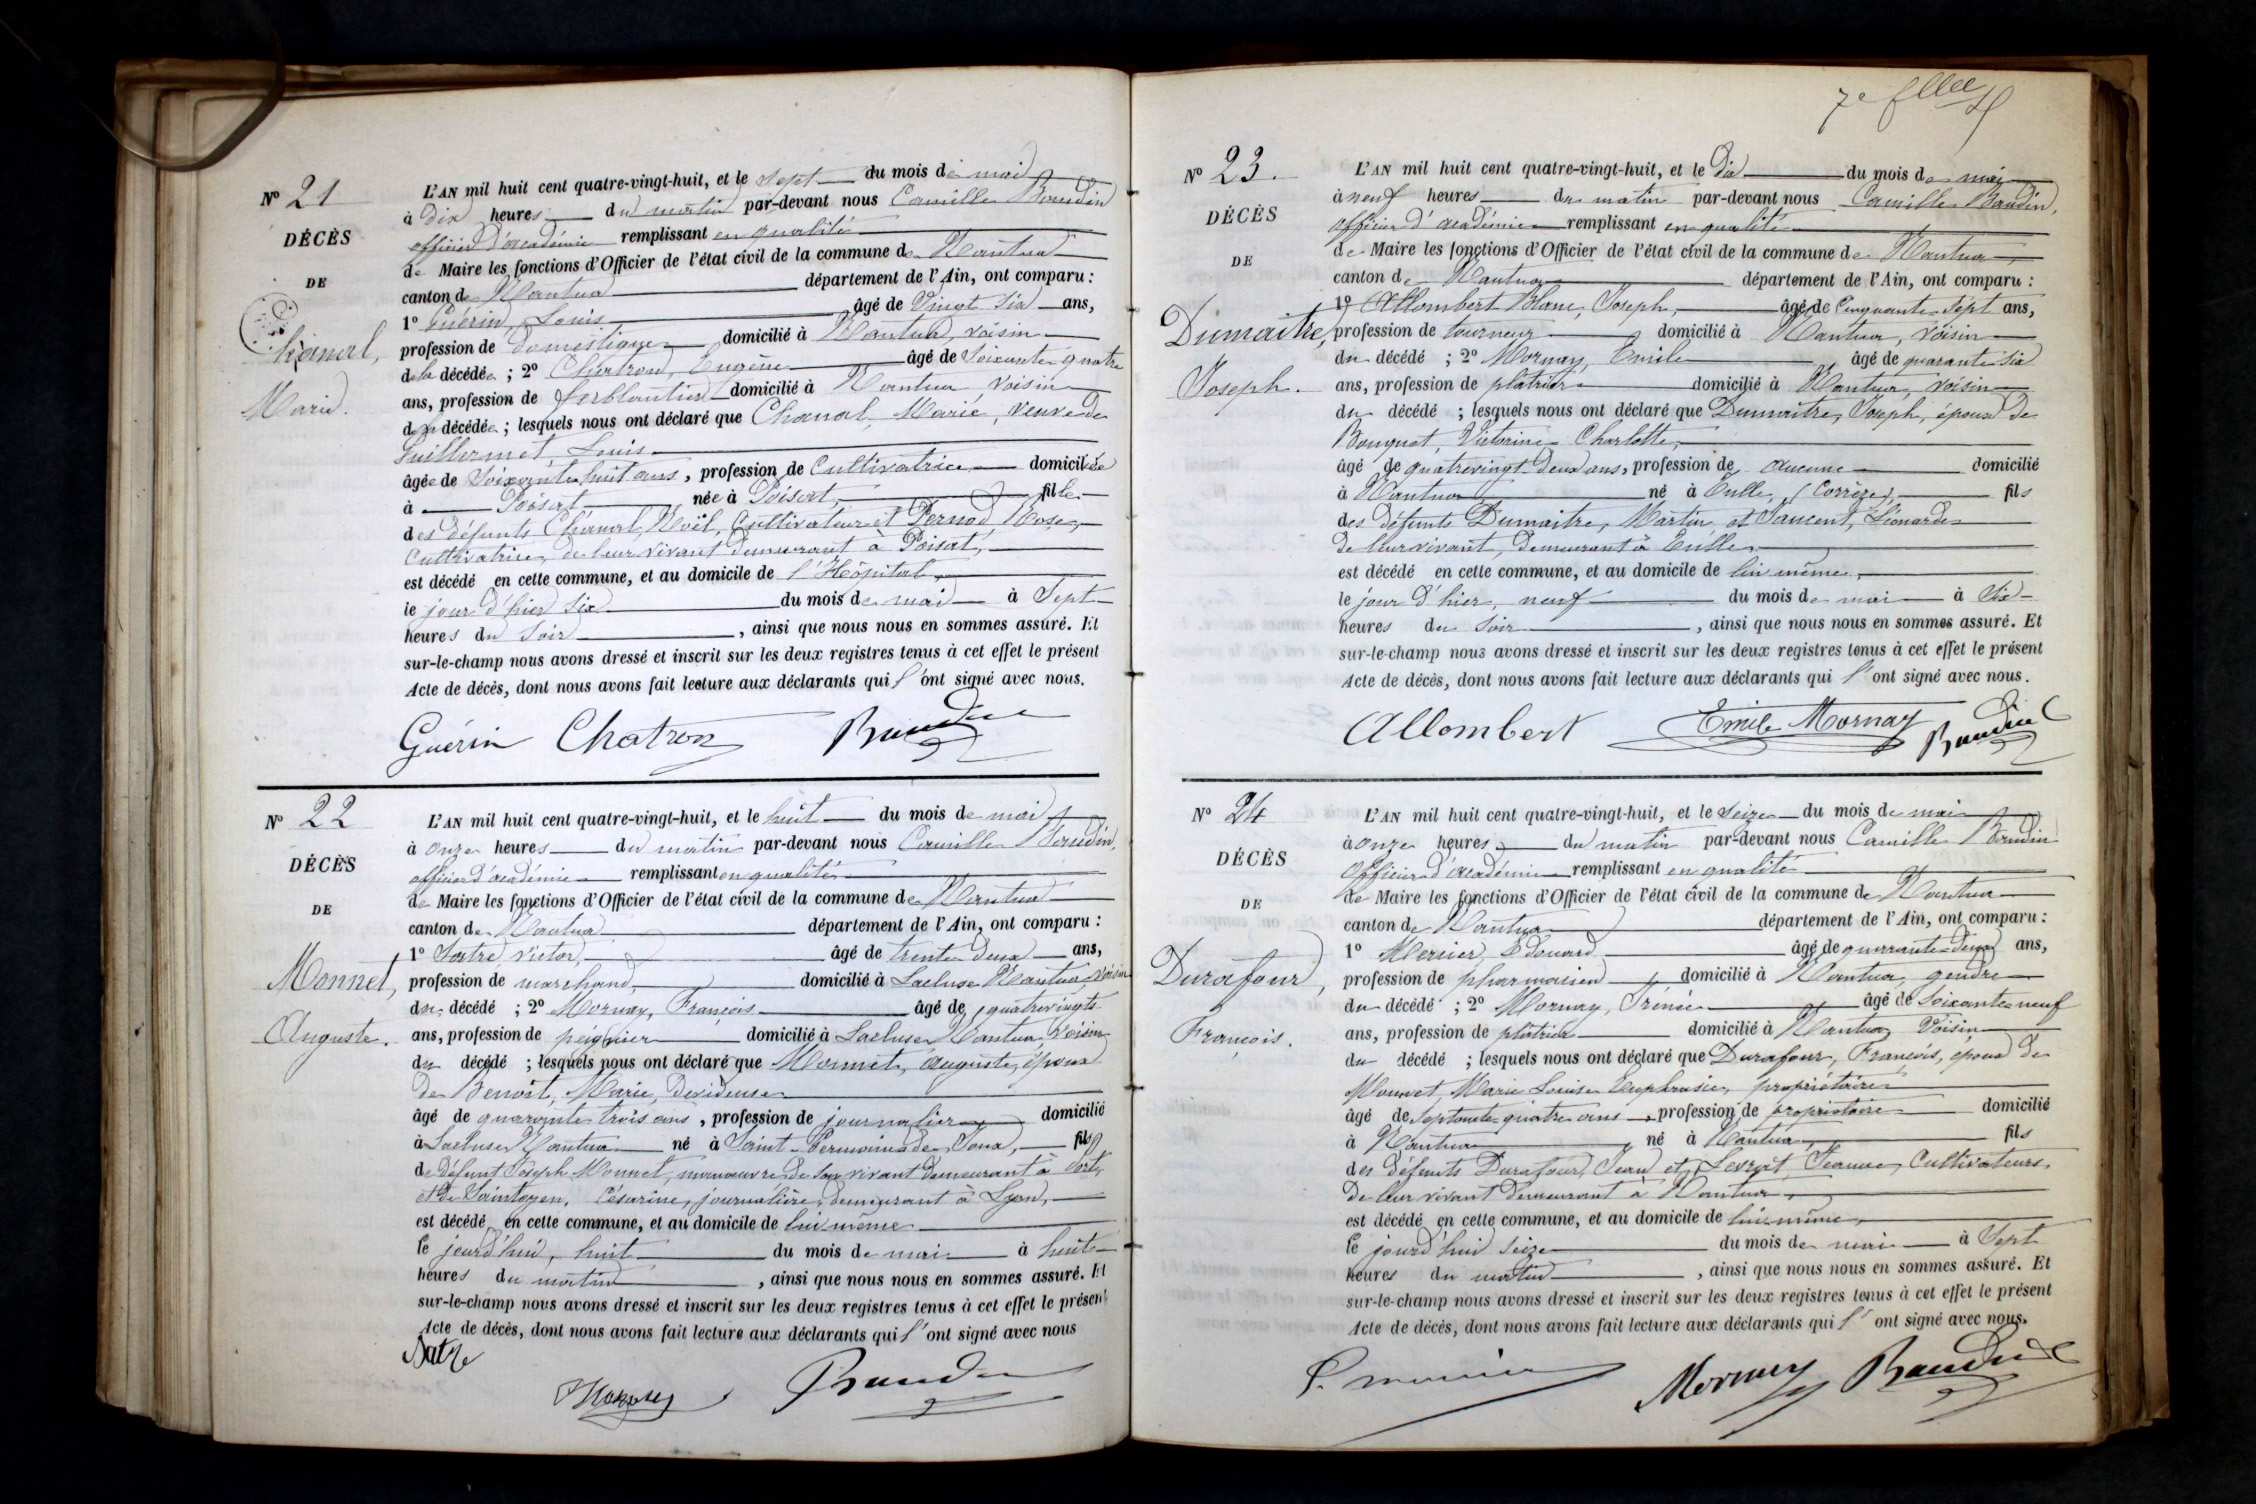 N° 21
DÉCÈS
DE
Chanal,
Marie.
L'AN mil huit cent quatre-vingt-huit, et le sept du mois de mai
à dix heures du matin par-devant nous Camille Baudin
officier d'académie remplissant en qualité
de Maire les fonctions d'Officier de l'état civil de la commune de Nantua
canton de Nantua département de l'Ain, ont comparu :
1° Guérin, Louis âgé de Vingt six ans,
profession de domestique domicilié à Nantua, voisin
de la décédée ; 2° Chatron, Eugène âgé de soixante quatre
ans, profession de ferblantier domicilié à Nantua, voisin
de la décédée ; lesquels nous ont déclaré que Chanal, Marie, veuve de
Guillermet, Louis
âgée de soixante huit ans, profession de Cultivatrice domiciliée
à Poisat née à Poisat, fille
des défunts Chanal, Noël, Cultivateur et Pernod, Rose,
Cultivatrice, de leur vivant demeurant à Poisat,
est décédé en cette commune, et au domicile de l'Hôpital,
le jour d'hier six du mois de mai à Sept
heures du soir , ainsi que nous nous en sommes assuré. Et
sur-le-champ nous avons dressé et inscrit sur les deux registres tenus à cet effet le présent
Acte de décès, dont nous avons fait lecture aux déclarants qui l'ont signé avec nous.
Guérin Chatron Baudin
N° 22
DÉCÈS
DE
Monnet,
Auguste.
L'AN mil huit cent quatre-vingt-huit, et le huit du mois de mai
à onze heures du matin par-devant nous Camille Baudin,
officier d'académie remplissant en qualité
de Maire les fonctions d'Officier de l'état civil de la commune de Nantua
canton de Nantua département de l'Ain, ont comparu :
1° Satre Victor, âgé de trente deux ans,
profession de marchand, domicilié à Lacluse Nantua, voisin
du décédé ; 2° Mornay, François âgé de quatrevingts
ans, profession de peignier domicilié à Lacluse Nantua, voisin
du décédé ; lesquels nous ont déclaré que Monnet, Auguste, époux
de Benoit, Marie, Devideuse
âgé de quarante trois ans, profession de journalier domicilié
à Lacluse Nantua né à Saint-Germain de Joux, fils
de défunt Joseph Monnet, manoeuvre de son vivant demeurant à Port,
et de Césarine, journalière, demeurant à Lyon,
est décédé en cette commune, et au domicile de lui même
le jourd'hui, huit du mois de mai à huit
heures du matin , ainsi que nous nous en sommes assuré. Et
sur-le-champ nous avons dressé et inscrit sur les deux registres tenus à cet effet le présent
Acte de décès, dont nous avons fait lecture aux déclarants qui l'ont signé avec nous
Satre
Baudin
7e
N° 23.
DÉCÈS
DE
Dumaitre,
Joseph.
L'AN mil huit cent quatre-vingt-huit, et le Dix du mois de mai
à neuf heures du matin par-devant nous Camille Baudin,
officier d'académie remplissant en qualité
de Maire les fonctions d'Officier de l'état civil de la commune de Nantua,
canton de Nantua département de l'Ain, ont comparu :
1° Allombert Blanc, Joseph, âgé de Cinquante-sept ans,
profession de tourneur domicilié à Nantua, voisin
du décédé ; 2° Mornay, Emile âgé de quarante six
ans, profession de plâtrier domicilié à Nantua, voisin
du décédé ; lesquels nous ont déclaré que Dumaitre, Joseph, époux de
Bouquet, Victorine Charlotte,
âgé de quatrevingt deux ans, profession de aucune domicilié
à Nantua né à Tulle, (Corrèze), fils
des défunts Dumaitre, Martin et Léonarde
de leur vivant, demeurant à Tulle,
est décédé en cette commune, et au domicile de lui même,
le jour d'hier, neuf du mois de mai à six
heures du soir , ainsi que nous nous en sommes assuré. Et
sur-le-champ nous avons dressé et inscrit sur les deux registres tenus à cet effet le présent
Acte de décès, dont nous avons fait lecture aux déclarants qui l'ont signé avec nous.
Allombert Emile Mornay Baudin
N° 24
DÉCÈS
DE
Durafour,
François.
L'AN mil huit cent quatre-vingt-huit, et le seize du mois de mai
à onze heures du matin par-devant nous Camille Baudin
officier d'académie remplissant en qualité
de Maire les fonctions d'Officier de l'état civil de la commune de Nantua
canton de Nantua département de l'Ain, ont comparu :
1° Mercier, Edouard âgé de quarante-deux ans,
profession de pharmacien domicilié à Nantua, gendre
du décédé ; 2° Mornay, Irénée âgé de soixante-neuf
ans, profession de plâtrier domicilié à Nantua, voisin
du décédé ; lesquels nous ont déclaré que Durafour, François, époux de
Marie Louise Euphrasie, propriétaire
âgé de septante-quatre ans, profession de propriétaire domicilié
à Nantua né à Nantua, fils
des défunts Durafour, Jean et Levrat, Jeanne, Cultivateurs,
de leur vivant demeurant à Nantua,
est décédé en cette commune, et au domicile de lui même,
le jourd'hui seize du mois de mai à Sept
heures du matin , ainsi que nous nous en sommes assuré. Et
sur-le-champ nous avons dressé et inscrit sur les deux registres tenus à cet effet le présent
Acte de décès, dont nous avons fait lecture aux déclarants qui l'ont signé avec nous.
Mornay Baudin